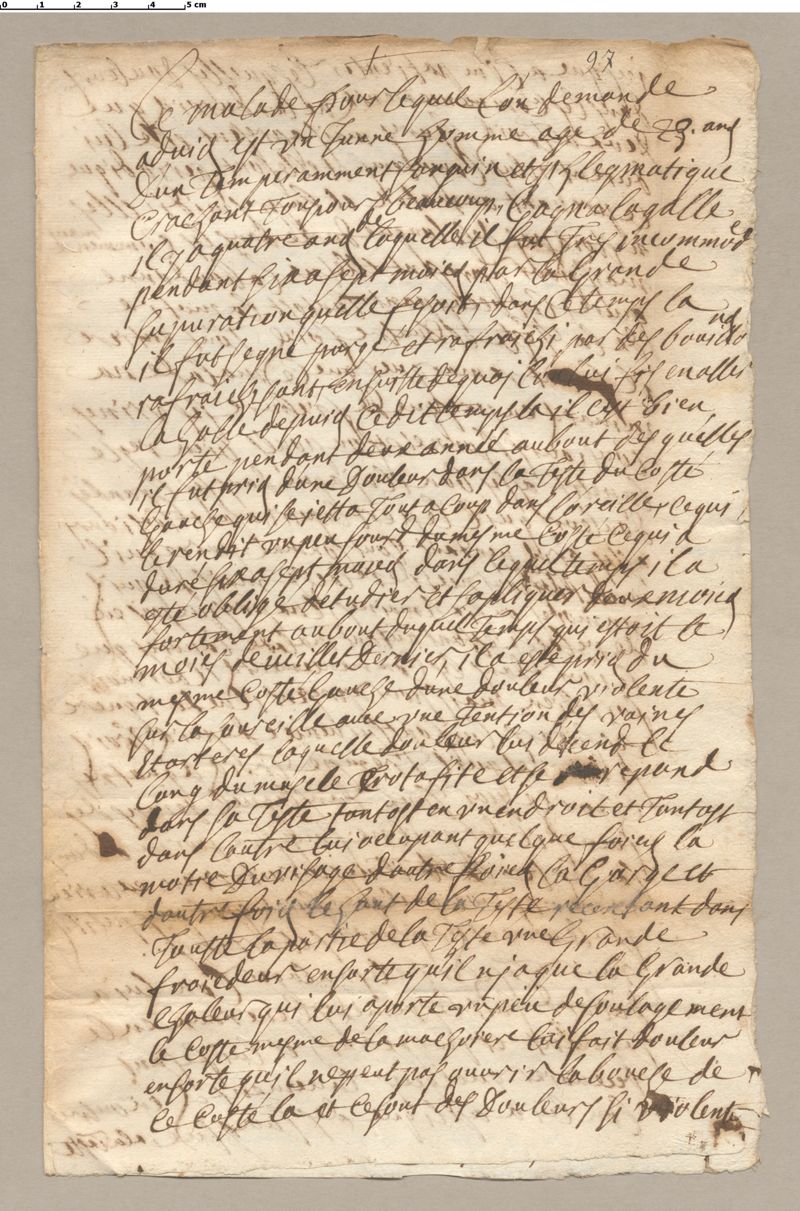 0 1 2 3 4 5 cm
97
Ce malade pour lequel l'on demande
aduis est vn Junne homme age de 23. ans
Dun Temperamment sanguin et phlegmatique
Crachant Tousjours beaucoup, Gagna la galle
il y a quatre ans de laquelle il fut Tres incommodé
pendant six a sept mois par la Grande
supuration quelle fesoit, dans ce temps la
il fut segné purgé et rafraichi par des bouillons
rafraichissant, ensorte de quoi lui fis en aller
la Galle depuis ce dit temps la il cest bien
porté pendant deux année aubout des quelles
il fut pris dune Douleur dans la Teste du Costé
Gauche qui se jetta Tout a Coup dans loreille ce qui
le rendit vn peu sourd du mesme Costé ce qui a
duré six a sept mois dans lequel temps il a
esté obligé detudier et sapliquer deux mois
fortement aubout duquel Temps qui estoit le
mois de iuillet Dernier, il a esté pris du
mesme Costé Gauche dune douleur violente
sur la soureille auec vne Tention des vaines
et arteres laquelle douleur lui descend le
Long du muscle Crotafite et se repand
dans sa Teste tantost en vn endroit et Tantost
dans lautre lui occupant quelque fois la
motié Du visage dautre fois la Gorge et
dautre fois le haut de la Teste recentant dans
Toutte la partie de la Teste vne Grande
froideur ensorte quil nj a que la Grande
Chaleur qui lui aporte vn peu de soulagement
le Costé mesme de la machoire lui fait douleur
ensorte quil ne peut pas ouurir la bouche de
ce Costé la et ce sont des Douleurs si violent